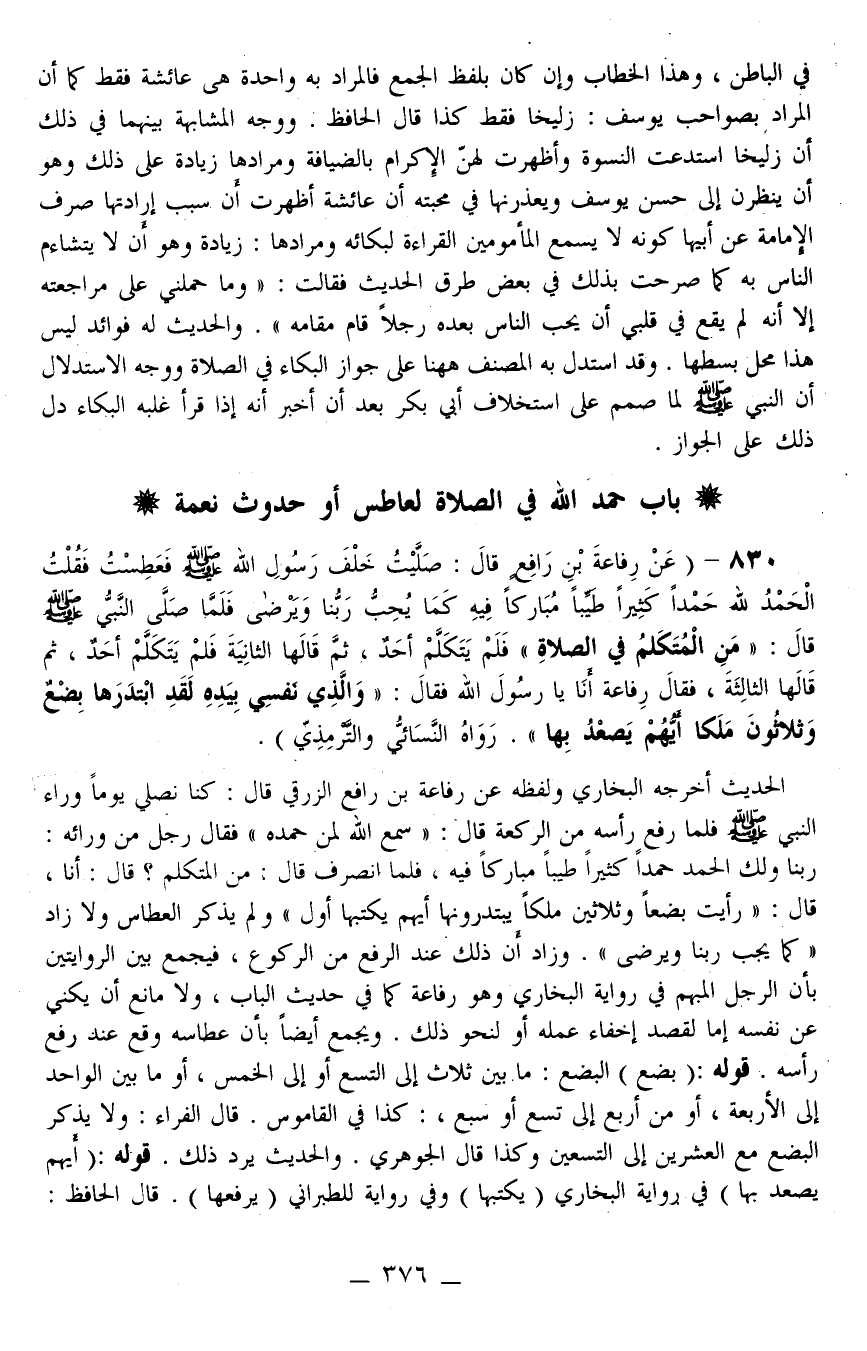 في الباطن ، وهذا الخطاب وإن كان بلفظ الجمع فالمراد به واحدة هى عائشة فقط كما أن
المراد بصواحب يوسف : زليخا فقط كذا قال الحافظ . ووجه المشابهة بينهما في ذلك
أن زليخا استدعت النسوة وأظهرت لهنّ الإكرام بالضيافة ومرادها زيادة على ذلك وهو
أن ينظرن إلى حسن يوسف ويعذرنها في محبته أن عائشة أظهرت أن سبب إرادتها صرف
الإمامة عن أبيها كونه لا يسمع المأمومين القراءة لبكائه ومرادها : زيادة وهو أن لا يتشاءم
الناس به كما صرحت بذلك في بعض طرق الحديث فقالت : « وما حملني على مراجعته
إلا أنه لم يقع في قلبي أن يحب الناس بعده رجلاً قام مقامه » . والحديث له فوائد ليس
هذا محل بسطها . وقد استدل به المصنف ههنا على جواز البكاء في الصلاة ووجه الاستدلال
أن النبي ﷺ لما صمم على استخلاف أبي بكر بعد أن أخبر أنه إذا قرأ غلبه البكاء دل
ذلك على الجواز .
✷ باب حمد الله في الصلاة لعاطس أو حدوث نعمة ✷
٨٣٠ – ( عَنْ رِفاعةَ بْنِ رَافِعٍ قالَ : صَلَّيْتُ خَلْفَ رَسُولِ الله ﷺ فَعَطِسْتُ فَقُلْتُ
الْحَمْدُ لله حَمْداً كَثِيراً طَيِّباً مُبَاركاً فِيهِ كَمَا يُحِبُّ رَبُّنا وَيَرْضٰى فَلَمَّا صَلَّى النَّبيُّ ﷺ
قالَ : « مَنِ الْمُتَكلمُ في الصلاةِ » فَلَمْ يَتَكَلَّمْ أحَدٌ ، ثمَّ قَالَها الثانِيَةَ فَلمْ يَتَكلَّمْ أحَدٌ ، ثم
قَالَها الثالِثَةَ ، فقالَ رِفاعة أَنَا يا رسُولَ الله فقالَ : « وَالَّذِي نَفسِي بِيَدِهِ لَقَدِ ابْتدَرَها بِضْعٌ
وَثلاثُونَ مَلَكا أَيُّهُمْ يَصعْدُ بِها » . رَوَاهُ النَّسائيُّ والتَّرْمِذِيّ ) .
الحديث أخرجه البخاري ولفظه عن رفاعة بن رافع الزرقي قال : كنا نصلي يوماً وراء
النبي ﷺ فلما رفع رأسه من الركعة قال : « سمع الله لمن حمده » فقال رجل من ورائه :
ربنا ولك الحمد حمداً كثيراً طيباً مباركاً فيه ، فلما انصرف قال : من المتكلم ؟ قال : أنا ،
قال : « رأيت بضعاً وثلاثين ملكاً يبتدرونها أيهم يكتبها أول » ولم يذكر العطاس ولا زاد
« كما يحب ربنا ويرضى » . وزاد أن ذلك عند الرفع من الركوع ، فيجمع بين الروايتين
بأن الرجل المبهم في رواية البخاري وهو رفاعة كما في حديث الباب ، ولا مانع أن يكني
عن نفسه إما لقصد إخفاء عمله أو لنحو ذلك . ويجمع أيضاً بأن عطاسه وقع عند رفع
رأسه . قوله :( بضع ) البضع : ما بين ثلاث إلى التسع أو إلى الخمس ، أو ما بين الواحد
إلى الأربعة ، أو من أربع إلى تسع أو سبع ، : كذا في القاموس . قال الفراء : ولا يذكر
البضع مع العشرين إلى التسعين وكذا قال الجوهري . والحديث يرد ذلك . قوله :( أيهم
يصعد بها ) في رواية البخاري ( يكتبها ) وفي رواية للطبراني ( يرفعها ) . قال الحافظ :
— ٣٧٦ —